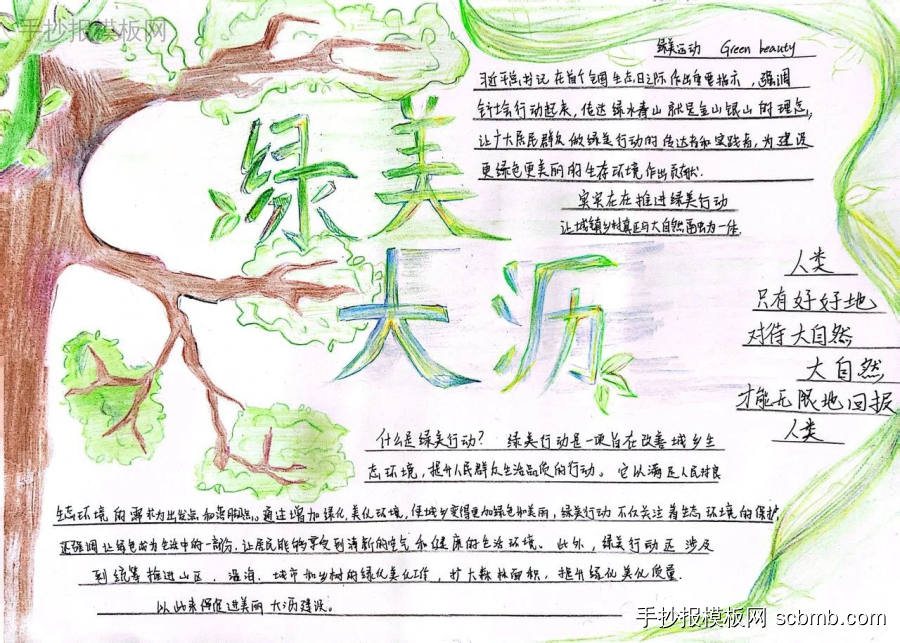 手抄报模板网
绿美运动 Green beauty
习近平总书记在首个全国生态日之际作出重要指示，强调
行动起来，传达绿水青山就是金山银山的理念，
让广大居民群众做绿美行动的传达者和实践者，为建设
更绿色更美丽的生存环境作出贡献.
实实在在推进绿美行动
让城镇乡村真正与大自然融为一体.
绿美
大沥
人类
只有好好地
对待大自然
大自然
才能无限地回报
人类
什么是绿美行动？ 绿美行动是一项旨在改善城乡生
态环境，提升人民群众生活品质的行动。它以满足人民对良
生态环境的需求为出发点和落脚点。通过增加绿化，美化环境，使城乡变得更加绿色和美丽，绿美行动不仅关注着生态环境的保护
还强调让绿色成为生活中的一部份，让居民能够享受到清新的空气和健康的生活环境。此外，绿美行动还涉及
到统筹推进山区、沿海、城市和乡村的绿化美化工作，扩大森林面积，提升绿化美化质量.
以此来促进美丽大沥建设。
手抄报模板网 scbmb.com